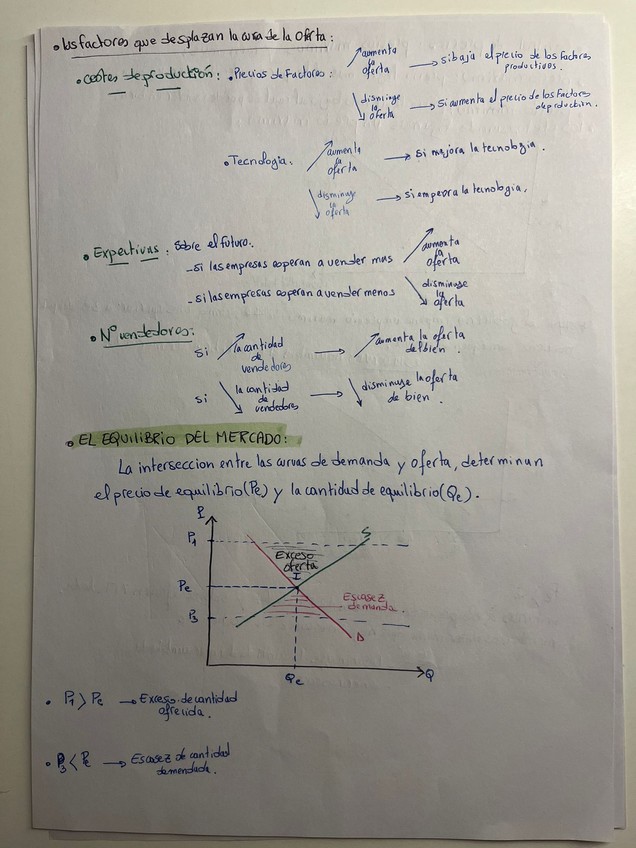 • los factores que desplazan la curva de la oferta:
• costes de producción: • Precios de Factores: aumenta la oferta → si baja el precio de los factores productivos.
disminuye la oferta → Si aumenta el precio de los factores de producción.
• Tecnologia. aumenta la oferta → Si mejora la tecnologia.
disminuye la oferta → Si empeora la tecnologia.
• Expectivas: Sobre el futuro.
- Si las empresas esperan a vender mas aumenta la oferta
- si las empresas esperan a vender menos disminuye la oferta
• Nº vendedores:
Si la cantidad de vendedores → aumenta la oferta del bien.
si la cantidad de vendedores → disminuye la oferta de bien.
• EL EQUILIBRIO DEL MERCADO:
La interseccion entre las curvas de demanda y oferta, determinan
el precio de equilibrio (Pe) y la cantidad de equilibrio (Qe).
P
S
P1
Exceso
oferta
I
Pe
Escasez
demanda.
P3
D
Qe
Q
• P1 > Pe → Exceso de cantidad
ofrecida.
• P3 < Pe → Escasez de cantidad
demandada.